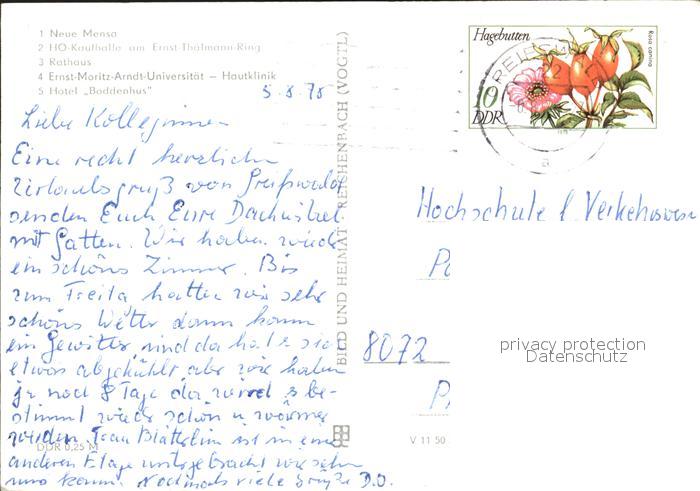 1 Neue Mensa
2 HO-Kaufhalle am Ernst-Thälmann-Ring
3 Rathaus
4 Ernst-Moritz-Arndt-Universität – Hautklinik
5 Hotel „Boddenhus"
5.8.78
Liebe Kolleginnen
Eine recht herzlichen
Urlaubsgruß von Greifswald
senden Euch Eure
mit Gatten. Wir haben wieder
ein schönes Zimmer. Bis
zum Freitag hatten wir sehr
schönes Wetter dann kam
ein Gewitter, und da hat es sich
etwas abgekühlt aber wir haben
ja noch 8 Tage da wird es be-
stimmt wieder schön u wärmer
werden. Frau ist in einer
anderen Etage untergebracht wir sehn
uns kaum. Nochmals viele Grüße D.O.
DDR 0,25 M
BILD UND HEIMAT REICHENBACH (VOGTL)
V 11 50
Hagebutten
Rosa canina
10
DDR
Hochschule f. Verkehrswese
8072
privacy protection
Datenschutz